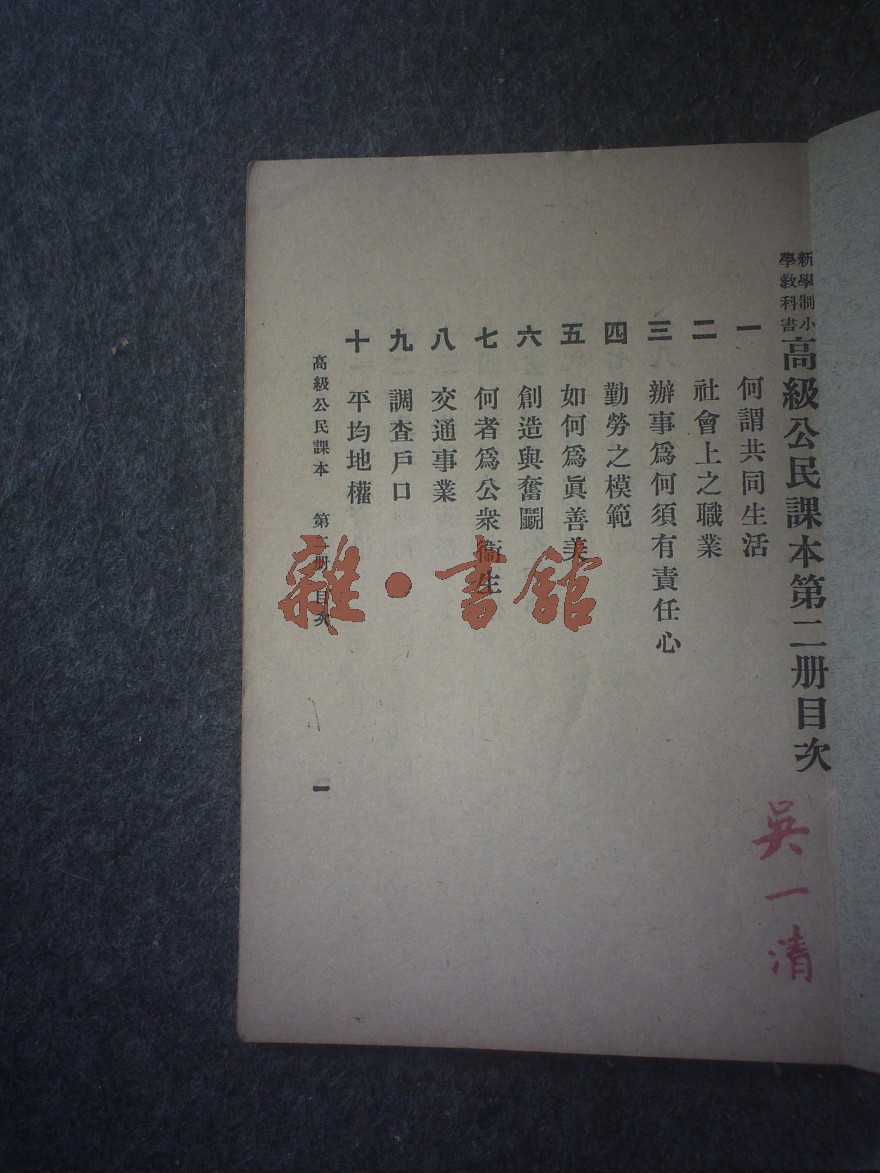 新學制小
學教科書
高級公民課本第二册目次
一 何謂共同生活
二 社會上之職業
三 辦事爲何須有責任心
四 勤勞之模範
五 如何爲眞善美
六 創造與奮鬭
七 何者爲公衆衞生
八 交通事業
九 調查戶口
十 平均地權
高級公民課本 第二册 目次
一
吳一清
雜·書館